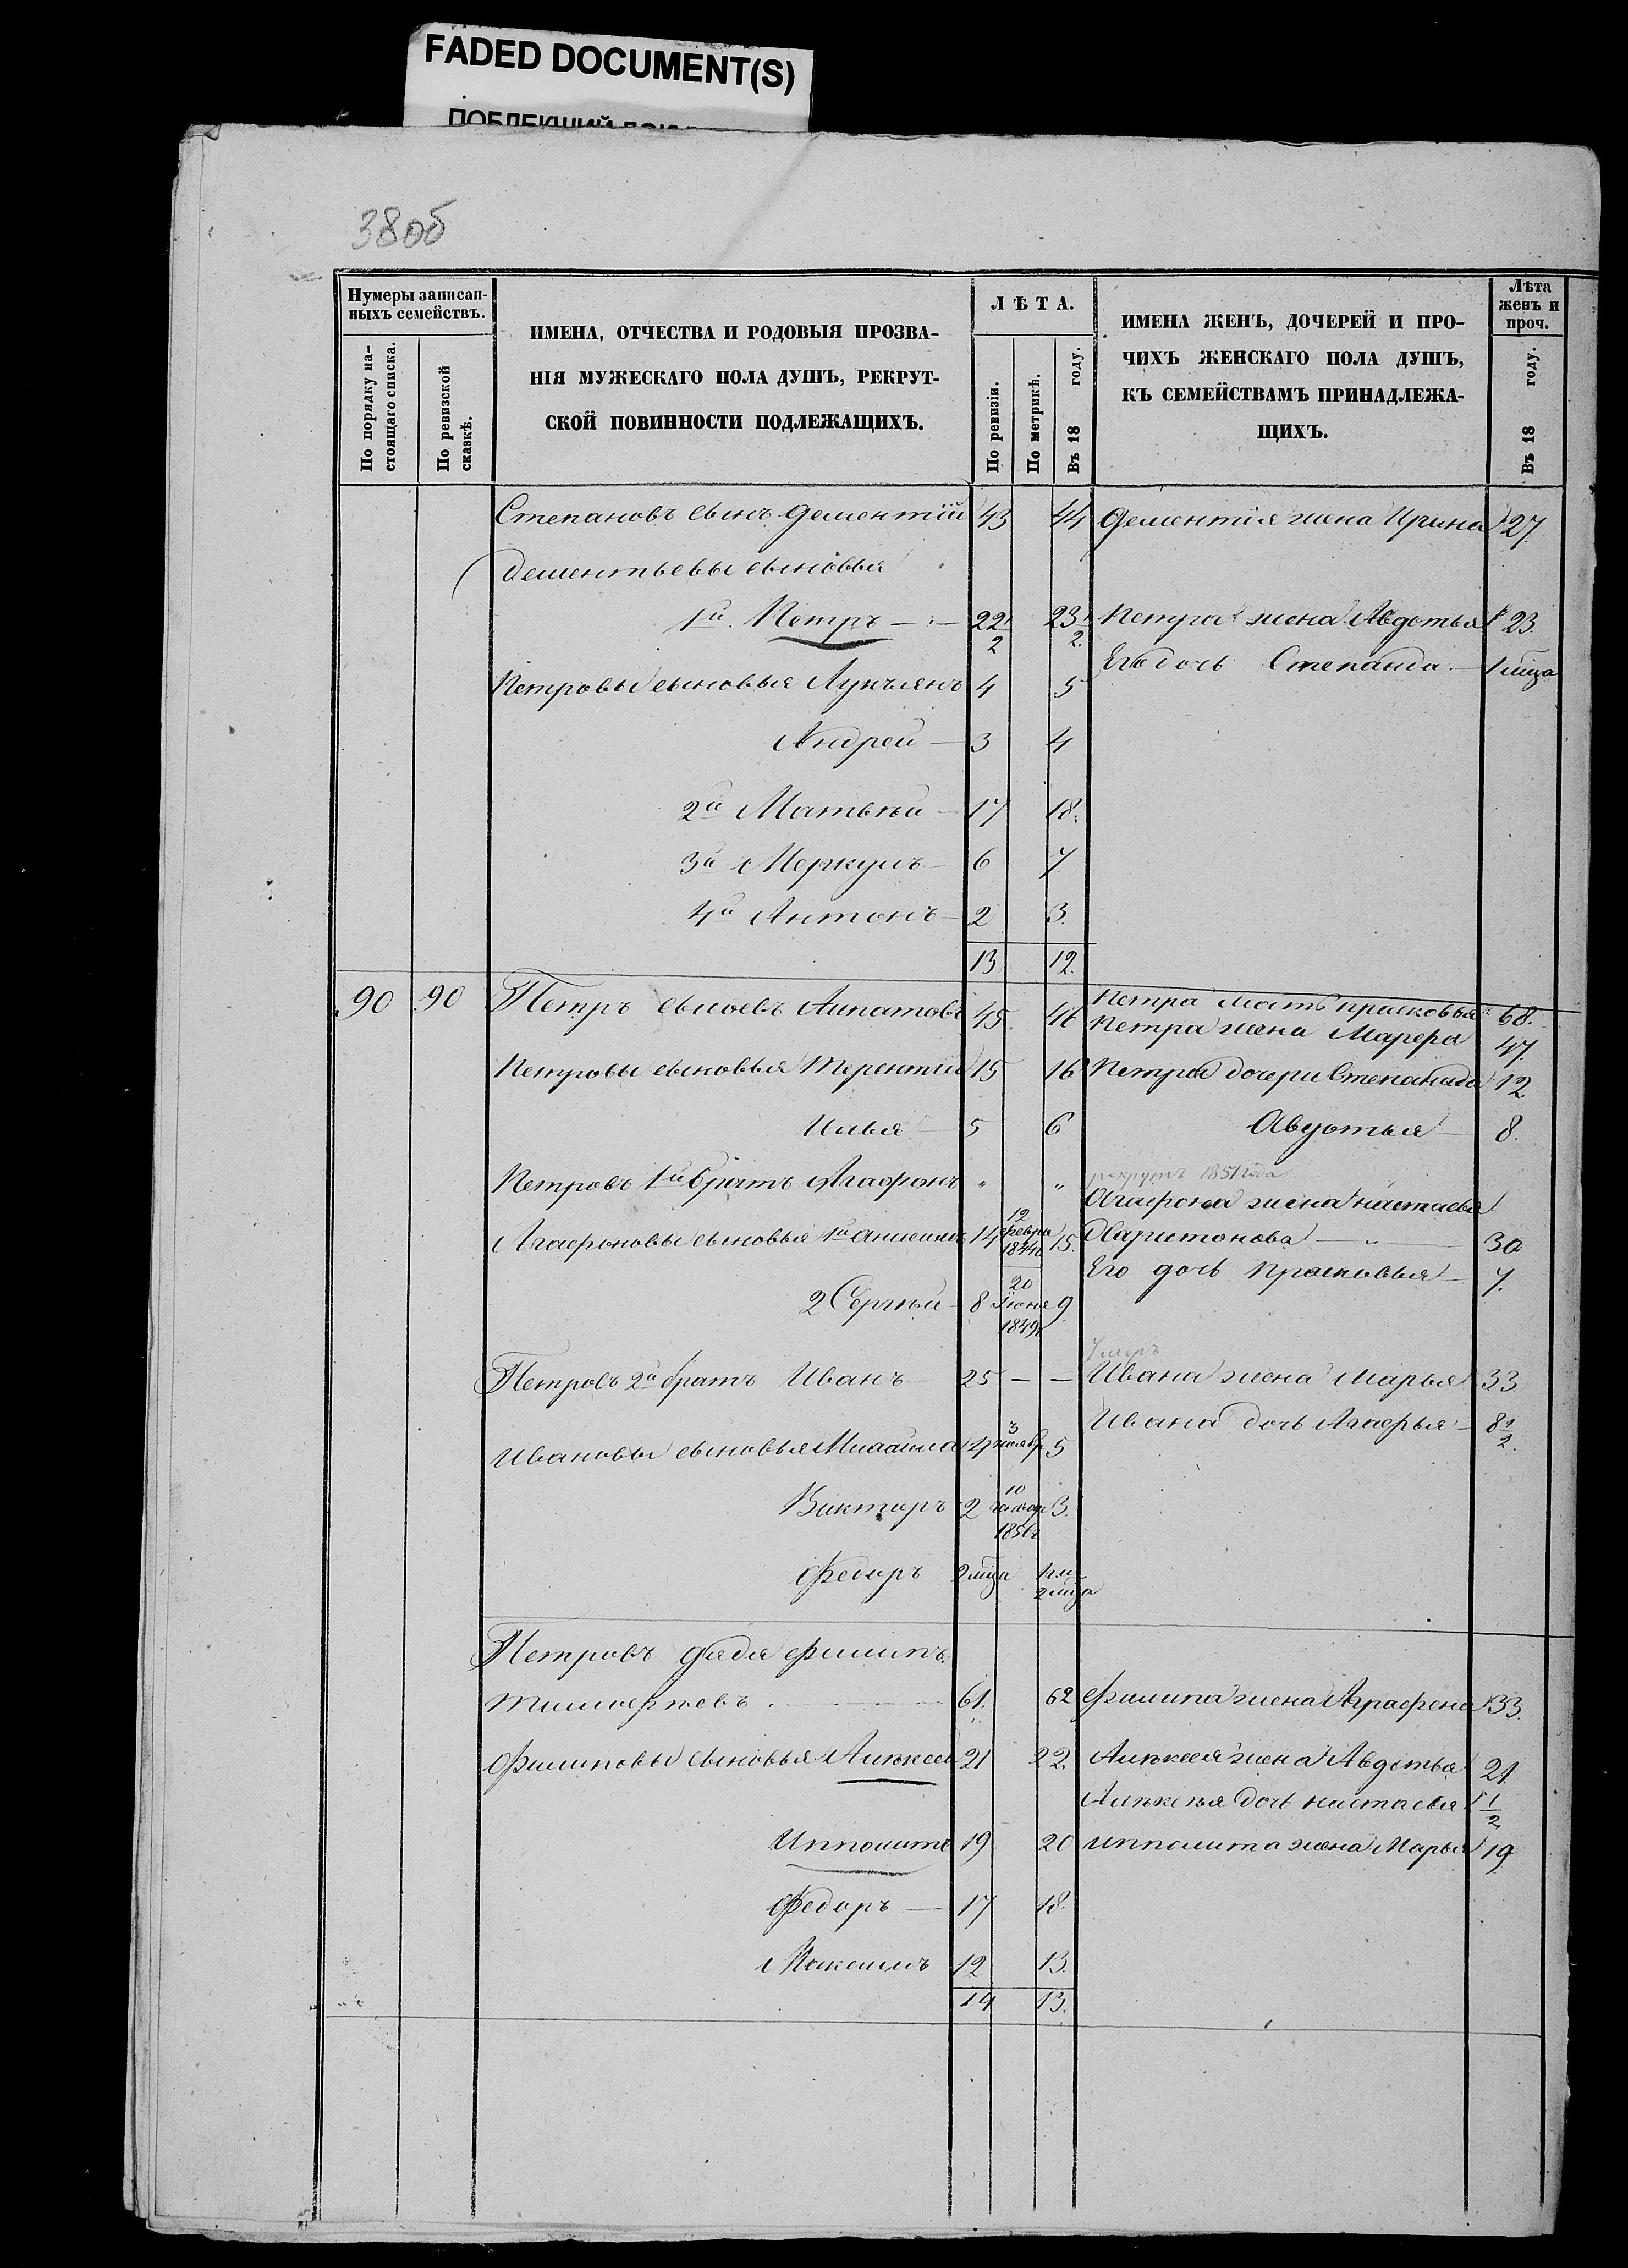 FADED DOCUMENT(S)
38об
Нумеры записан-
ныхъ семействъ.
По порядку на-
стоящаго списка.
По ревизской
сказкѣ.
ИМЕНА, ОТЧЕСТВА И РОДОВЫЯ ПРОЗВА-
НІЯ МУЖЕСКАГО ПОЛА ДУШЪ, РЕКРУТ-
СКОЙ ПОВИННОСТИ ПОДЛЕЖАЩИХЪ.
ЛѢТА.
По ревизіи.
По метрикѣ.
Въ 18 году.
ИМЕНА ЖЕНЪ, ДОЧЕРЕЙ И ПРО-
ЧИХЪ ЖЕНСКАГО ПОЛА ДУШЪ,
КЪ СЕМЕЙСТВАМЪ ПРИНАДЛЕЖА-
ЩИХЪ.
Лѣта
женъ и
проч.
Въ 18 году.
Степановъ сынъ Дементій 43 44 Дементія жена Ирина 27.
Дементьевы сыновья
1й. Петръ 22 1/2 23 1/2. Петра жена Авдотья 23.
Его дочь Степанида 1 мѣца
Петровы сыновья Лукъянъ 4 5
Андрей 3 4
2й Матвѣй 17 18.
3й Меркулъ 6 7
4й Антонъ 2 3.
13 12.
90 90 Петръ Аипатовъ 45. 46 Петра мать Прасковья 68.
Петра жена Марѳа 47.
Петровы сыновья Терентій 15 16 Петра дочери Степанида 12
Илья 5 6 Авдотья 8.
рекрутъ 1851 года
Петровъ 1й братъ Агафонъ " " Агафона жена Настасья
Агафоновы сыновья 1й Анисимъ 14 12 февра 1844 15. Харитонова 30
Его дочь Прасковья 7.
2 Сергѣй 8 20 Іюня 1849 9
Умеръ
Петровъ 2й братъ Иванъ 25 — — Ивана жена Марья 33
Ивана дочь Агафья 8 1/2.
Ивановы сыновья Михаила 4 ноябр 5
Викторъ 2 10 3.
Федоръ 2 мѣца 1 г. и 2 мѣца
Петровъ дядя Филипъ
Тимоѳѣевъ 61. 62 Филипа жена Аграфена 33.
Филиповы сыновья Алѣксей 21 22. Алѣксея жена Авдотья 21.
Алѣксѣя дочь Настасья 1/2
Ипполитъ 19 20 Ипполита жена Марья 19
Федоръ 17 18.
Максимъ 12 13.
14 13.